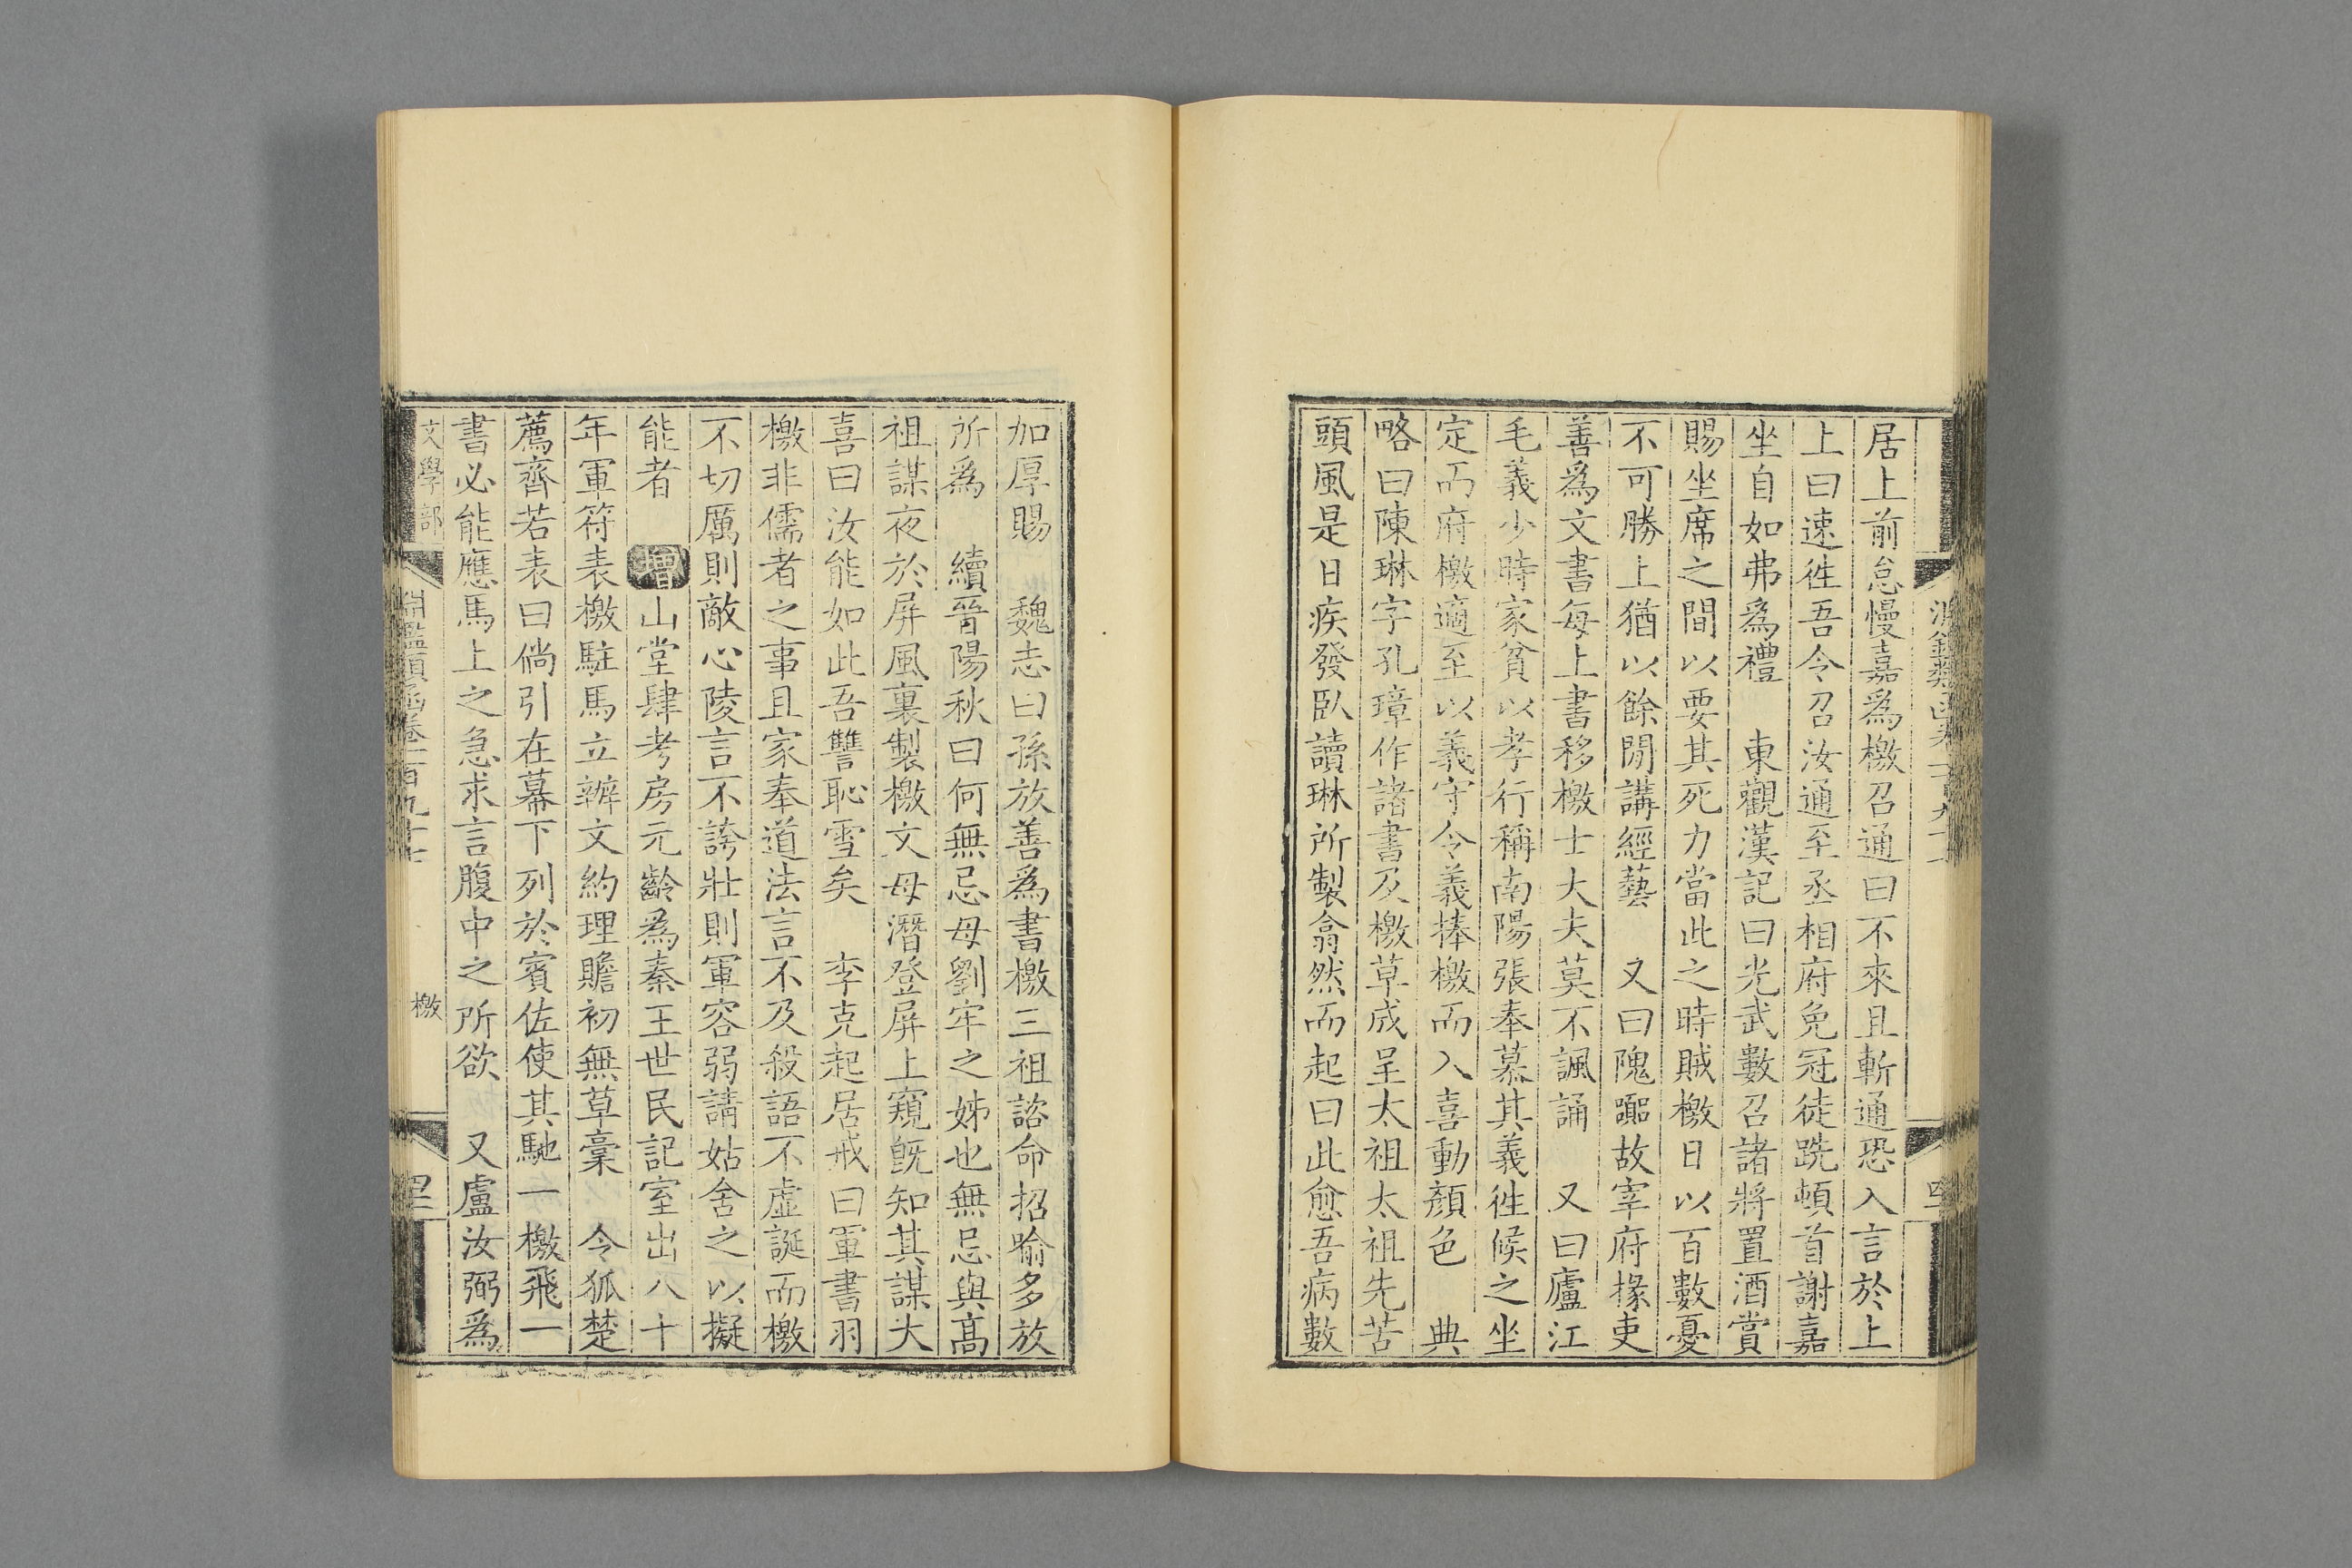 居上前怠慢嘉爲檄召通曰不來且斬通恐入言於上
上曰速徃吾今召汝通至丞相府免冠徒跣頓首謝嘉
坐自如弗爲禮　東觀漢記曰光武數召諸將置酒賞
賜坐席之間以要其死力當此之時賊檄日以百數憂
不可勝上猶以餘閒講經藝　又曰隗囂故宰府掾吏
善爲文書每上書移檄士大夫莫不諷誦　又曰廬江
毛義少時家貧以孝行稱南陽張奉慕其義徃候之坐
定而府檄適至以義守令義捧檄而入喜動顏色　典
略曰陳琳字孔璋作諸書及檄草成呈太祖太祖先苦
頭風是日疾發臥讀琳所製翕然而起曰此愈吾病數
加厚賜　魏志曰孫放善爲書檄三祖詔命招喻多放
所爲　續晉陽秋曰何無忌母劉牢之姊也無忌與髙
祖謀夜於屏風裏製檄文母潛登屏上窺旣知其謀大
喜曰汝能如此吾讐恥雪矣　李克起居戒曰軍書羽
檄非儒者之事且家奉道法言不及殺語不虛誕而檄
不切厲則敵心陵言不誇壯則軍容弱請姑舍之以擬
能者　增山堂肆考房元齡爲秦王世民記室出入十
年軍符表檄駐馬立辦文約理贍初無草稾　令狐楚
薦齊若表曰倘引在幕下列於賓佐使其馳一檄飛一
書必能應馬上之急求言腹中之所欲　又盧汝弼爲
文學部
淵鑑類函卷一百九十七
檄